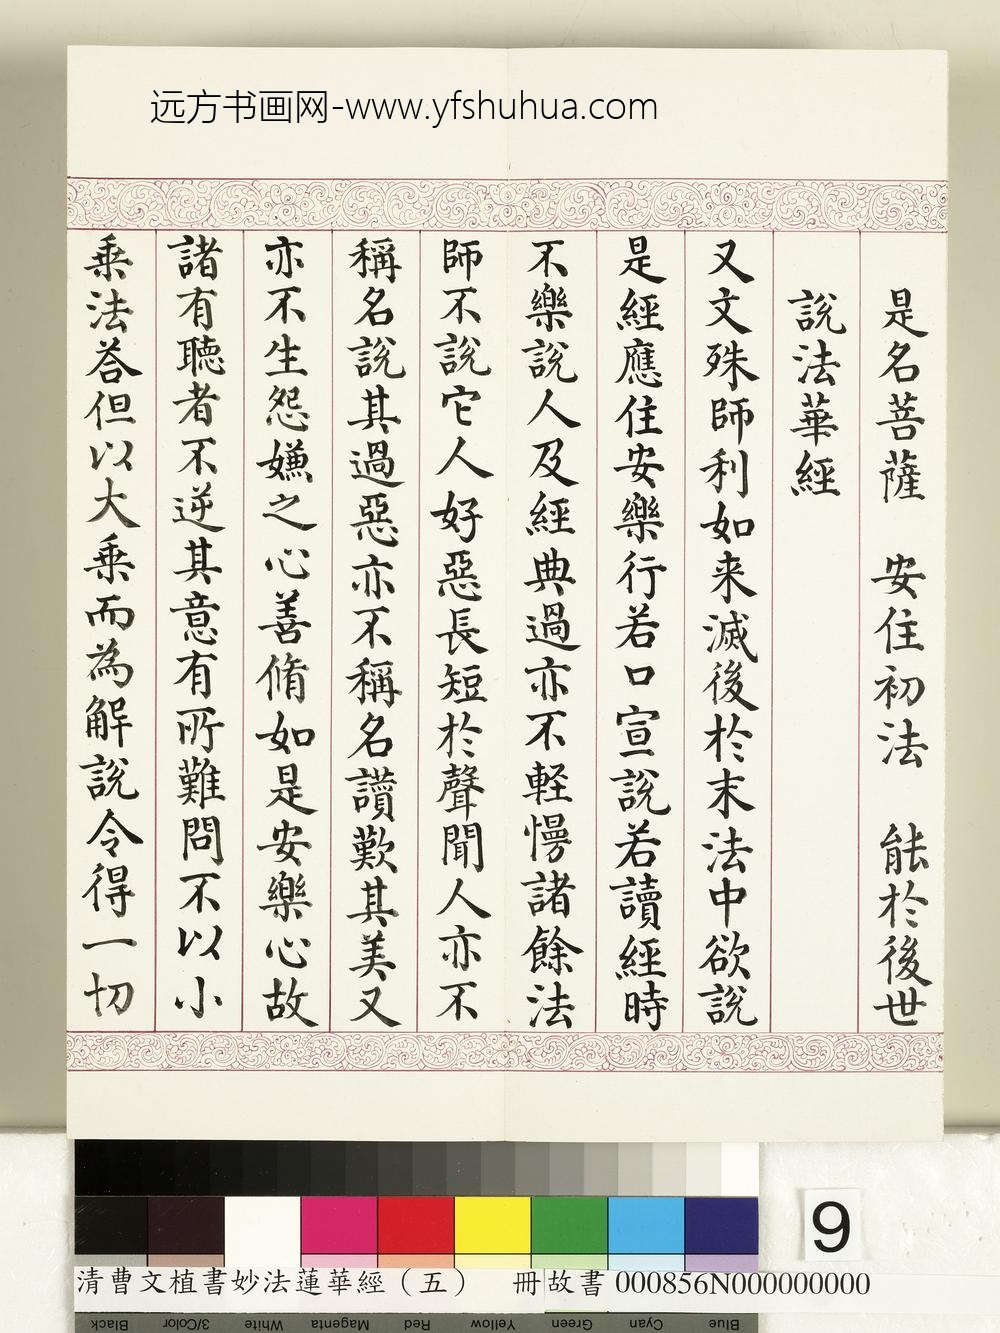 远方书画网-www.yfshuhua.com
是名菩薩 安住初法 能於後世
說法華經
又文殊師利如来滅後於末法中欲說
是經應住安樂行若口宣說若讀經時
不樂說人及經典過亦不軽慢諸餘法
師不說它人好惡長短於聲聞人亦不
稱名說其過惡亦不稱名讚歎其美又
亦不生怨嫌之心善脩如是安樂心故
諸有聽者不逆其意有所難問不以小
乘法荅但以大乘而為解說令得一切
9
清曹文植書妙法蓮華經（五） 冊 故書 000856N000000000
Black 3/Color White Magenta Red Yellow Green Cyan Blue